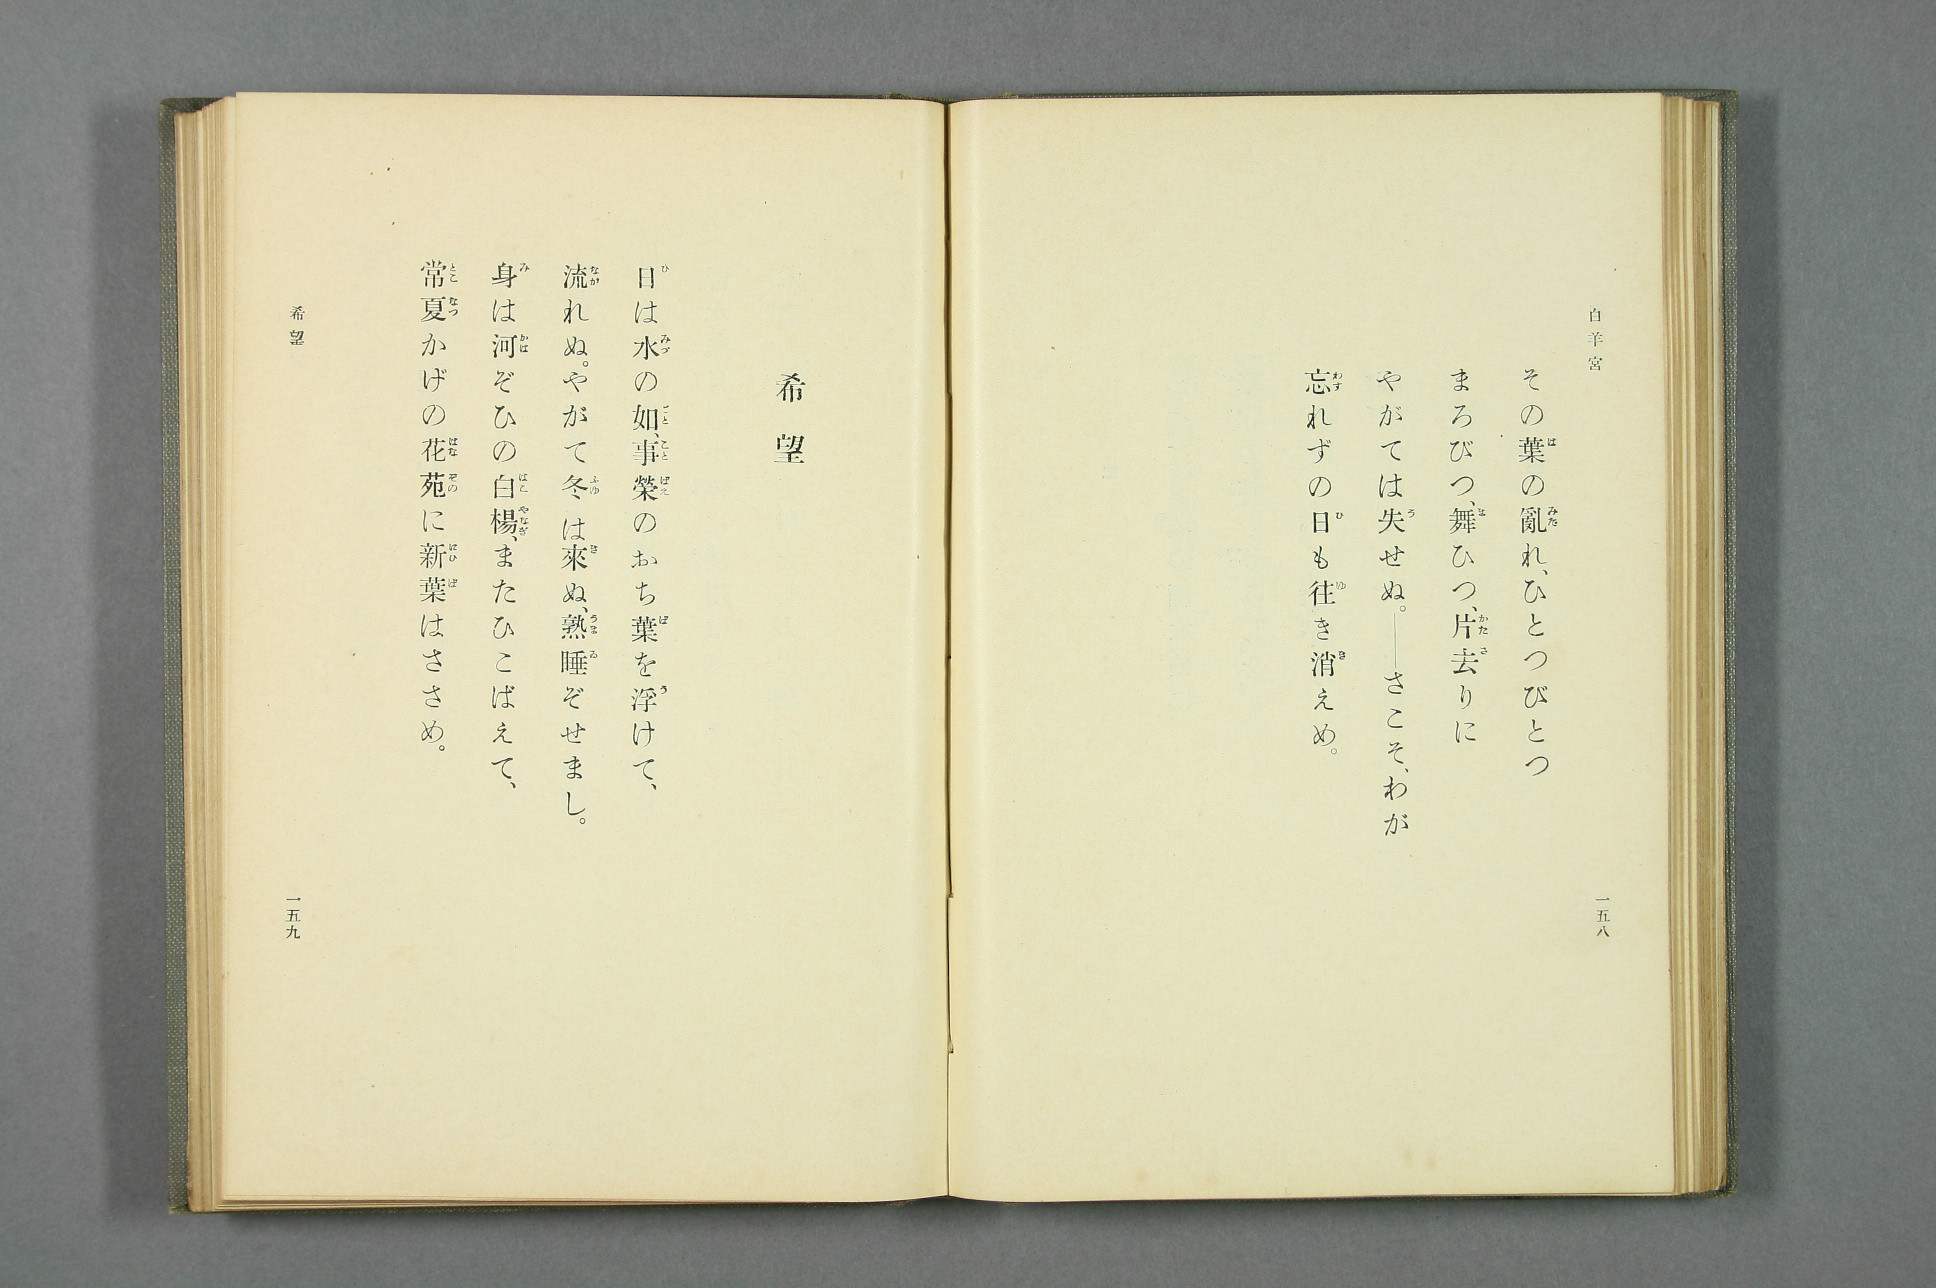 白羊宮
その葉の亂れ、ひとつびとつ
まろびつ、舞ひつ、片去りに
やがては失せぬ。――さこそ、わが
忘れずの日も往き消えめ。
一五八
希望
日は水の如、事榮のおち葉を浮けて、
流れぬ。やがて冬は來ぬ、熟睡ぞせまし。
身は河ぞひの白楊、またひこばえて、
常夏かげの花苑に新葉はささめ。
希望
一五九